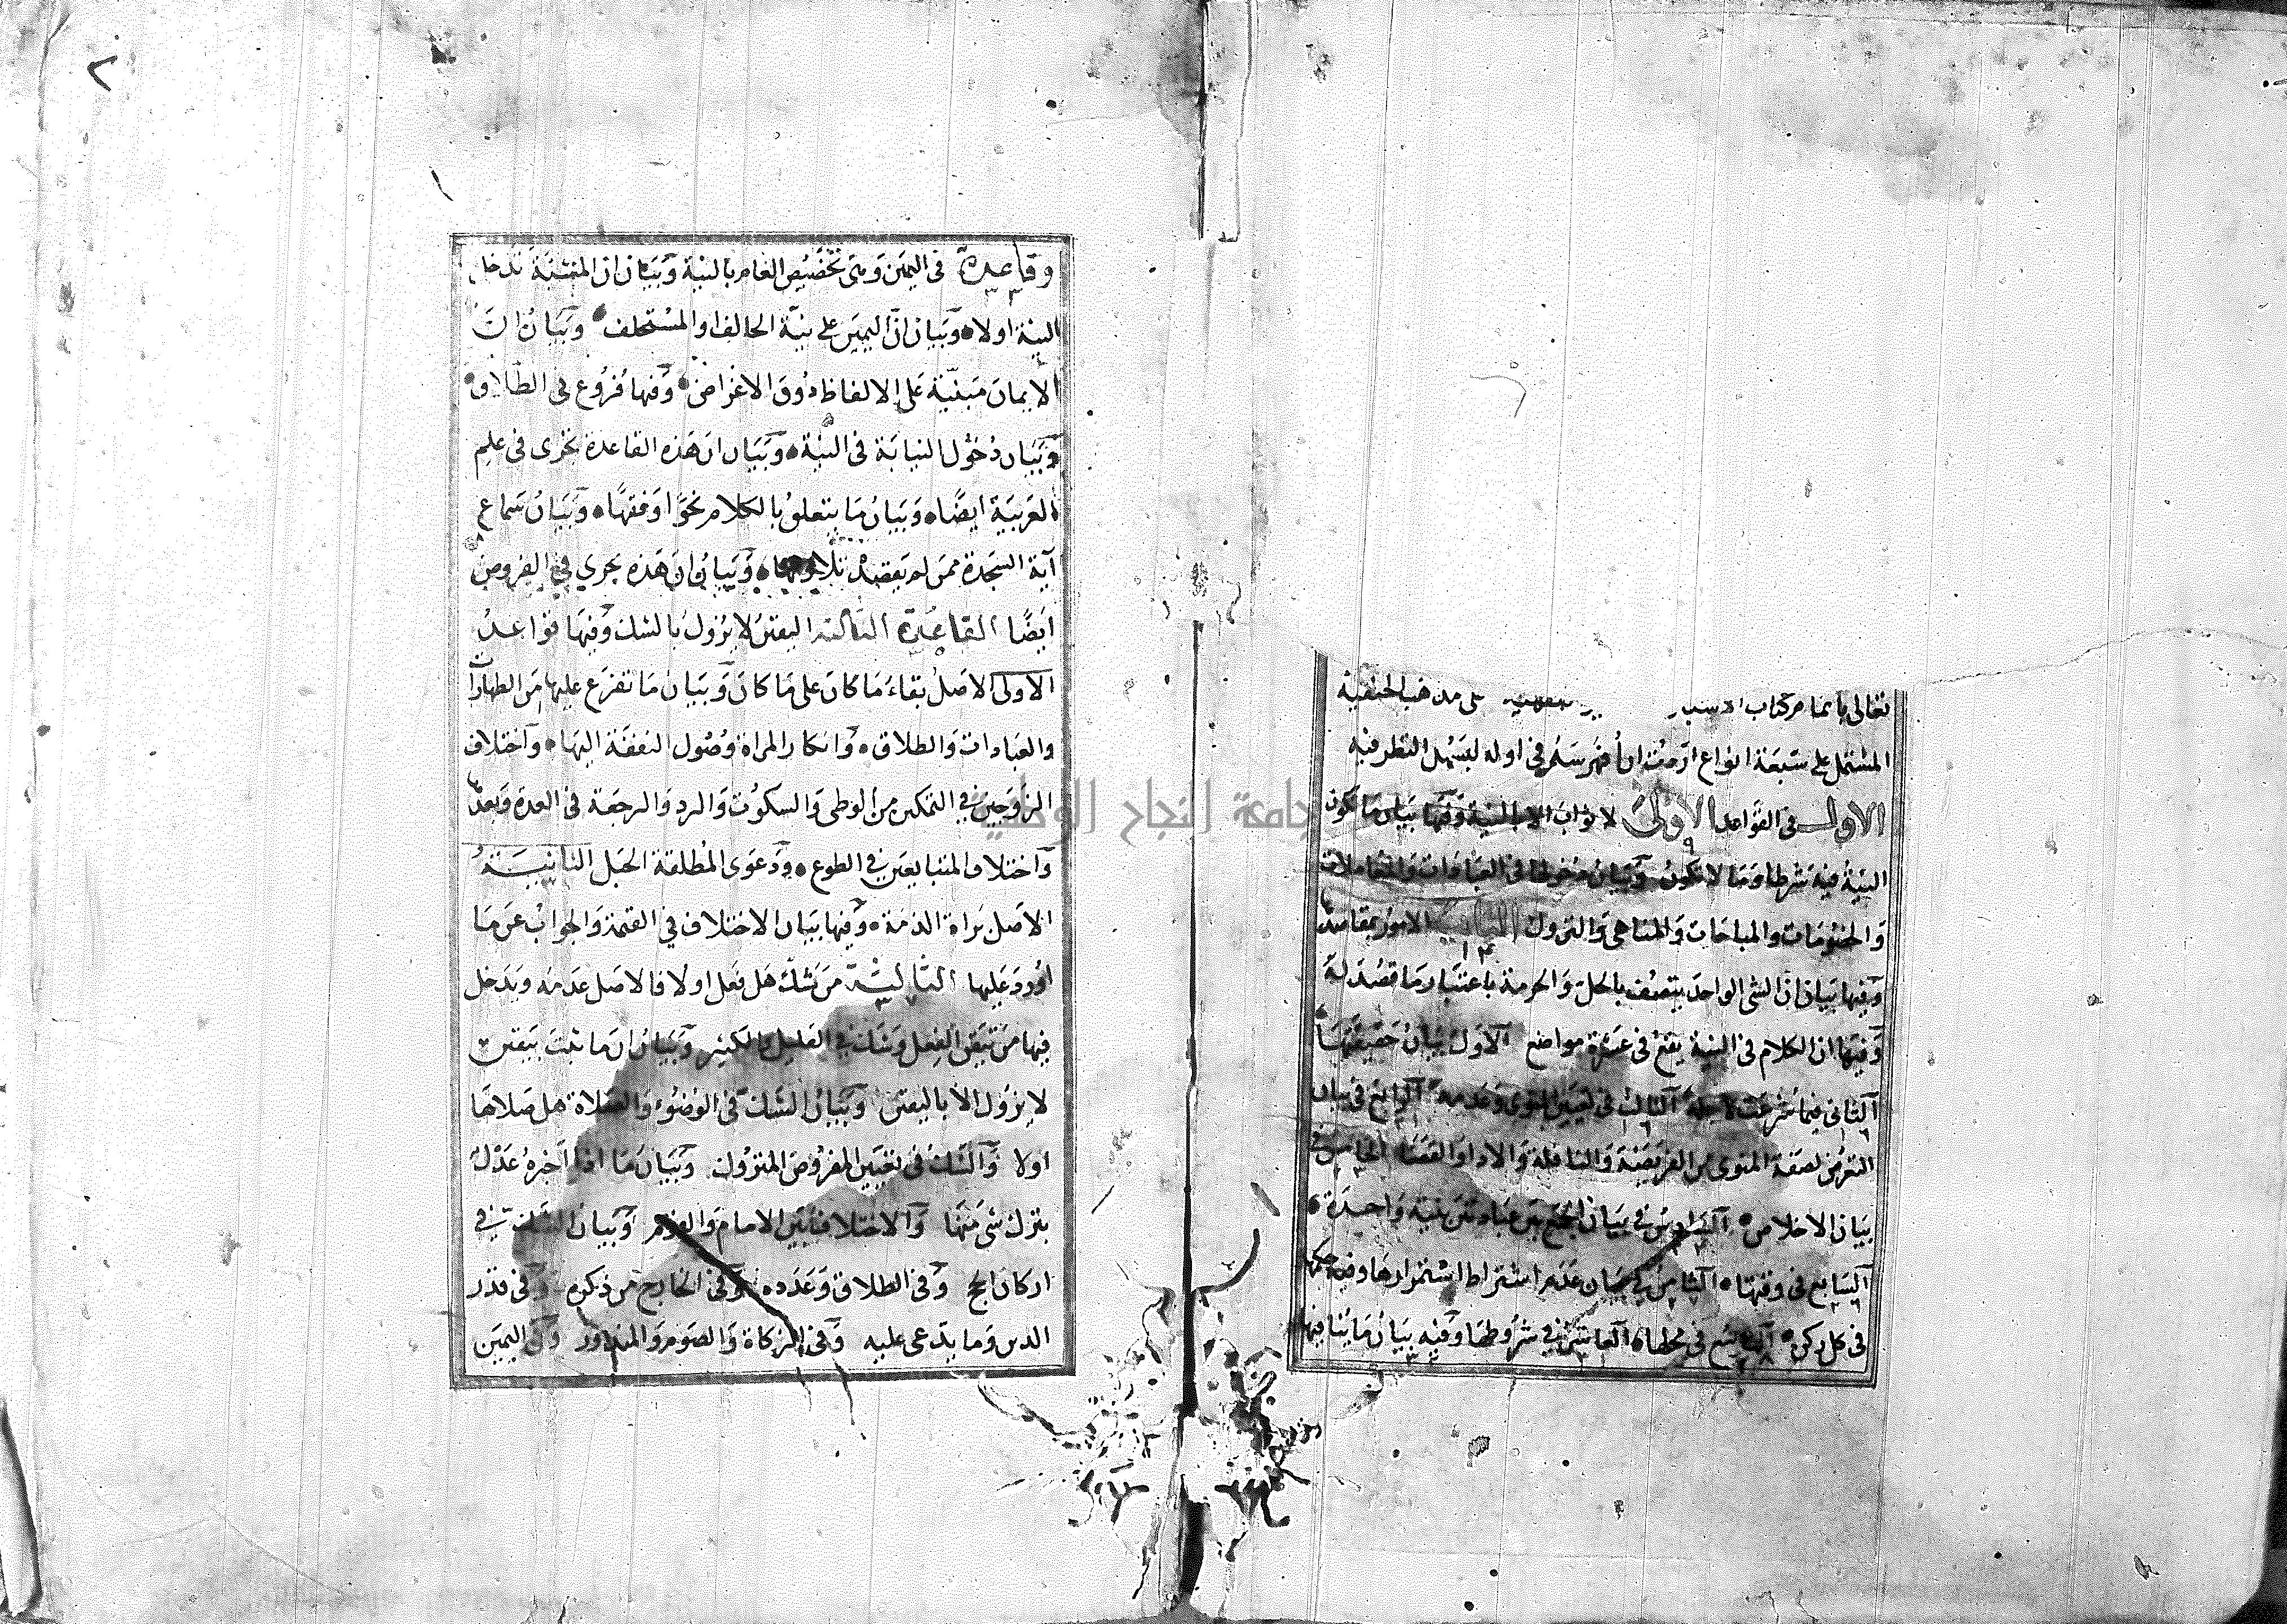 تعالى باتمام كتاب على مذهب الحنفية
المشتمل على سبعة انواع اردت ان افهرسه في اوله ليسهل النظر فيه
الاول في القواعد الاولى لا ثواب الا بالنية وفيها بيان ما تكون
النية فيه شرطا وما لا تكون وبيان دخولها في العبادات والمعاملات
والخصومات والمباحات والمناهي والتروك الثانية الامور بمقاصدها
وفيها بيان ان الشي الواحد يتصف بالحل والحرمة باعتبار ما قصد له
وفيها ان الكلام في النية يقع في عشرة مواضع الاول بيان حقيقتها
الثاني فيما شرعت لاجله الثالث في تعيين المنوي وعدمه الرابع في بيان
التعرض لصفة المنوي من الفريضة والنافلة والاداء والقضا الخامس في
بيان الاخلاص السادس في بيان الجمع بين عبادتين بنية واحدة
السابع في وقتها الثامن في بيان عدم اشتراط استمرارها وفيه حكمها
في كل ركن التاسع في محلها العاشر في شروطها وفيه بيان ما ينافيها
وقاعدة
٢
وقاعدة في اليمين وهي تخصيص العام بالنية وبيان ان المشيئة تدخل
النية اولا وبيان ان اليمين على نية الحالف او المستحلف وبيان ان
الايمان مبنية على الالفاظ دون الاغراض وفيها فروع في الطلاق
وبيان دخول النيابة في النية وبيان ان هذه القاعدة تجرى في علم
العربية ايضا وبيان ما يتعلق بالكلام نحوا وفقها وبيان سماع
آية السجدة ممن لم يقصد تلاوتها وبيان ان هذه تجري في العروض
ايضا القاعدة الثالثة اليقين لا يزول بالشك وفيها قواعد
الاولى الاصل بقاء ما كان على ما كان وبيان ما تفرع عليها من الطهارات
والعبادات والطلاق وانكار المراة وصول النفقة اليها واختلاف
الزوجين في التمكين من الوطى والسكوت والرد والرجعة في العدة وبعدها
واختلاف المتبايعين في الطوع ودعوى المطلقة الحبل الثانية
الاصل براة الذمة وفيها بيان الاختلاف في القيمة والجواب عن ما
اورد عليها الثالثة من شك هل فعل اولا فالاصل عدمه ويدخل
فيها من تيقن الفعل وشك في القليل والكثير وبيان ان ما ثبت بيقين
لا يزول الا باليقين وبيان الشك في الوضوء والصلاة هل صلاها
اولا والشك في تعيين المفروض المتروك وبيان ما اذا اخبره عدل
بترك شي منها والاختلاف بين الامام والقوم وبيان الشك في
اركان الحج وفي الطلاق وعدده وفي الخارج من ذكره وفي قدر
الدين وما يدعى عليه وفي الزكاة والصوم والمنذور وفي اليمين
جامعة النجاح الوطنية